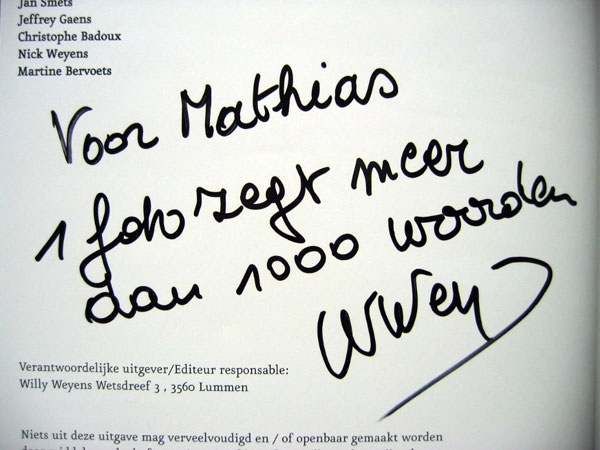 Jan Smets
Jeffrey Gaens
Christophe Badoux
Nick Weyens
Martine Bervoets
Voor Mathias
1 foto zegt meer
dan 1000 woorden
WWey
Verantwoordelijke uitgever/Editeur responsable:
Willy Weyens Wetsdreef 3 , 3560 Lummen
Niets uit deze uitgave mag verveelvoudigd en / of openbaar gemaakt worden